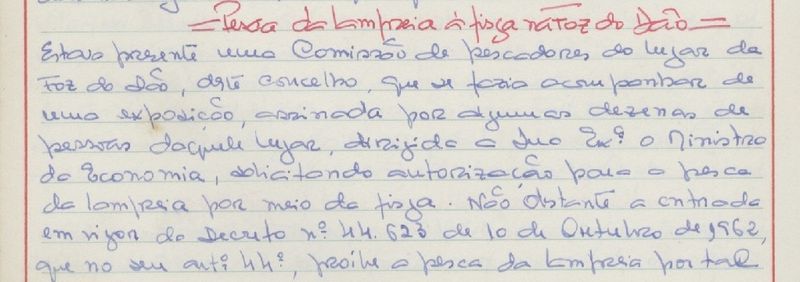 =Pesca da lampreia à fisga na Foz do Dão=
Estava presente uma Comissão de pescadores do lugar da
Foz do Dão, deste concelho, que se fazia acompanhar de
uma exposição, assinada por algumas dezenas de
pessoas daquele lugar, dirigida a Sua Exª o Ministro
da Economia, solicitando autorização para a pesca
da lampreia por meio da fisga. Não obstante a entrada
em vigor do Decreto nº 44.623 de 10 de Outubro de 1962,
que no seu artº 44º, proibe a pesca da lampreia por tal